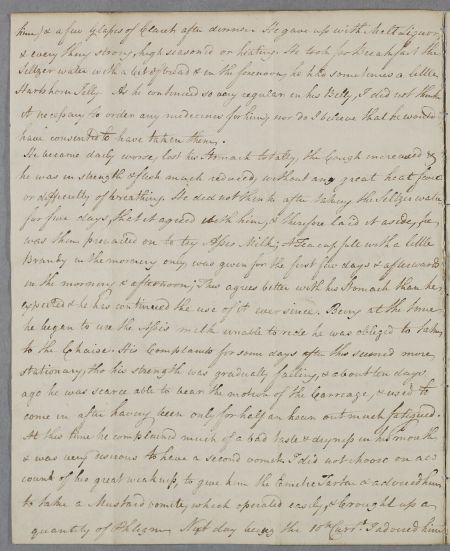 time, & a few Glasses of Claret after dinner. He gave up with Malt Liquor,
& every thing strong, high seasoned or heating. He took for Breakfast the
Seltzer water with a bit of bread & in the forenoon he had sometimes a little
Hartshorn Jelly. As he continued so very regular in his Belly, I did not think
it necessary to order any medicines for him, nor do I believe that he would
have consented to have taken them.
He became daily worse, lost his Stomach totally, the Cough increased &
he was in strength & flesh much reduced, without any great heat, fever
or difficulty of breathing. He did not think after taking the Seltzer water
for five days, that it agreed with him, & therefore laid it aside, he
was then prevailed on to try Asses Milk; A Teacup full with a little
Brandy in the morning only was given for the first few days & afterwards
in the morning & afternoon; This agrees better with his Stomach than he
expected & he has continued the use of it ever since. Being at the time
he began to use the Asses milk unable to ride he was obliged to take
to the Chaise. His Complaints for some days after this seemed more
stationary, tho his strength was gradually failing, & about ten days
ago he was scarce able to bear the motion of the Carriage, & used to
come in after having been only for half an hour out much fatigued.
At this time he complained much of a bad taste & dryness in his mouth
& was very desirous to have a second vomit. I did not choose on ac=
count of his great weakness, to give him the Emetic Tartar & advised him
to take a Mustard vomit, which operated easily, & brought up a
quantity of Phlegm. Next day being the 10th Curr.t I advised him